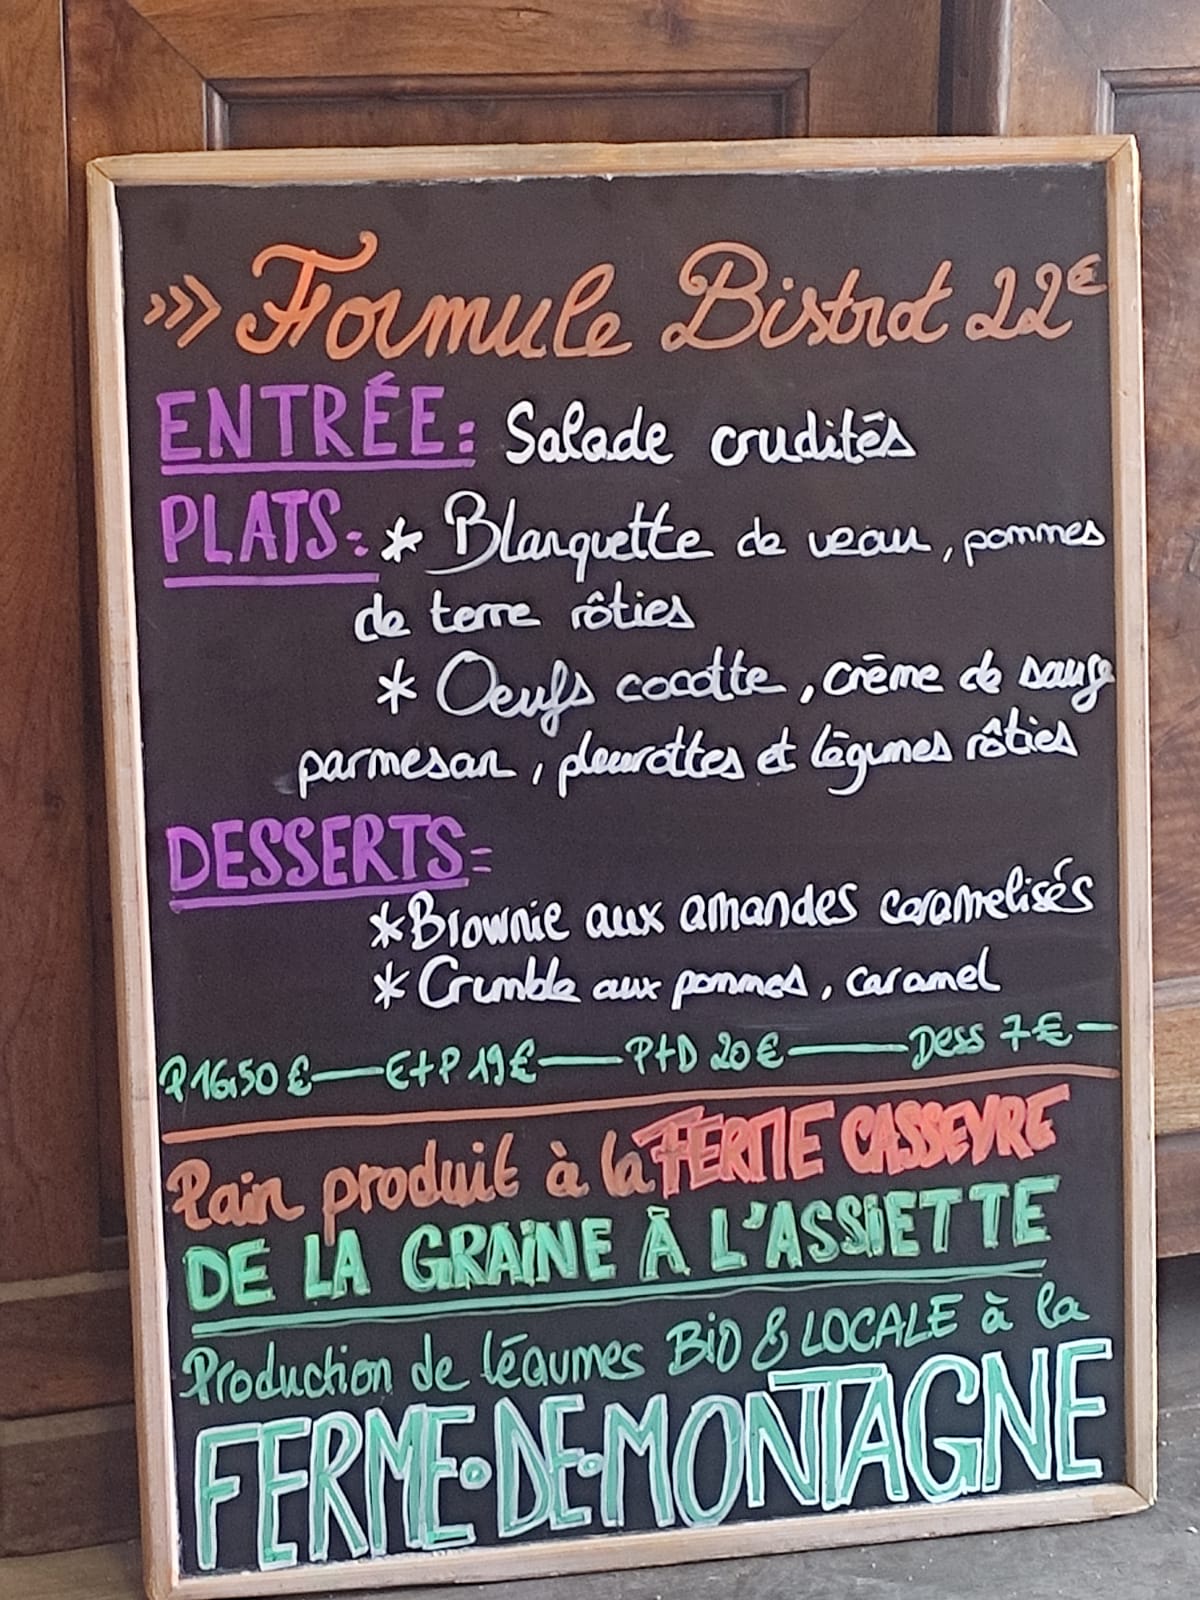 >>> Formule Bistrot 22€
ENTRÉE: Salade crudités
PLATS: * Blanquette de veau, pommes
de terre rôties
* Oeufs cocotte, crème de sauge
parmesan, pleurottes et légumes rôties
DESSERTS:
* Brownie aux amandes caramelisés
* Crumble aux pommes, caramel
P 16,50 € — E+P 19€ — P+D 20€ — Dess 7€ —
Pain produit à la FERME CASSEVRE
DE LA GRAINE À L'ASSIETTE
Production de légumes BiO & LOCALE à la
FERME•DE•MONTAGNE